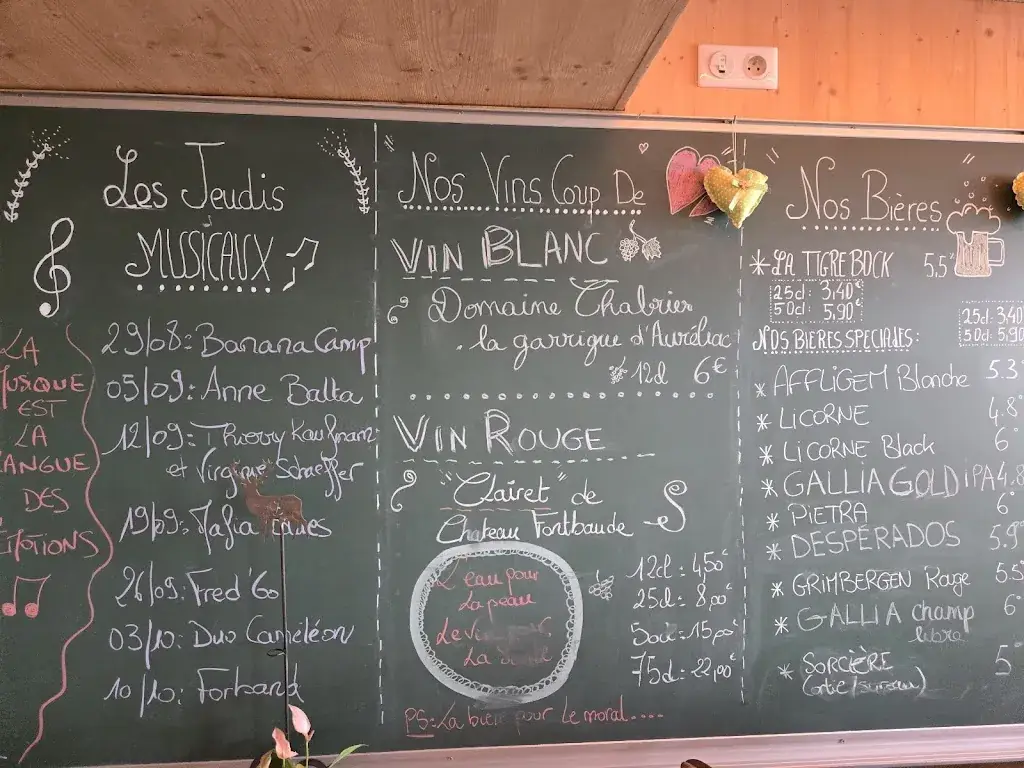 Les Jeudis
MUSICAUX
29/08: Banana Camp
05/09: Anne Balta
12/09: Thierry Kaufmann
et Virginie Schaeffer
19/09: Mafia
26/09: Fred'Go
03/10: Duo Caméléon
10/10: Forband
LA
MUSIQUE
EST
LA
LANGUE
DES
ÉMOTIONS
Nos Vins Coup De
VIN BLANC
Domaine Chabrier
la garrigue d'Auréliac
12cl 6€
VIN ROUGE
"Clairet" de
Chateau Fontbaude
12cl = 4,50€
25cl = 8,00€
50cl = 15,00€
75cl = 22,00€
L'eau pour
La peau
Le vin pour
La
PS: La bière pour le moral....
Nos Bières
* LA TIGRE BOCK 5.5°
25cl: 3,40€
50cl: 5,90€
NOS BIERES SPECIALES:
25cl: 3,40
50cl: 5,90
* AFFLIGEM Blanche 5.3°
* LICORNE 4.8°
* LICORNE Black 6°
* GALLIA GOLD iPA 4.8
* PIETRA 6°
* DESPÉRADOS 5.9°
* GRIMBERGEN Rouge 5.5°
* GALLIA champ 6°
libre
* SORCIÈRE 5°
(ortie/sureau)